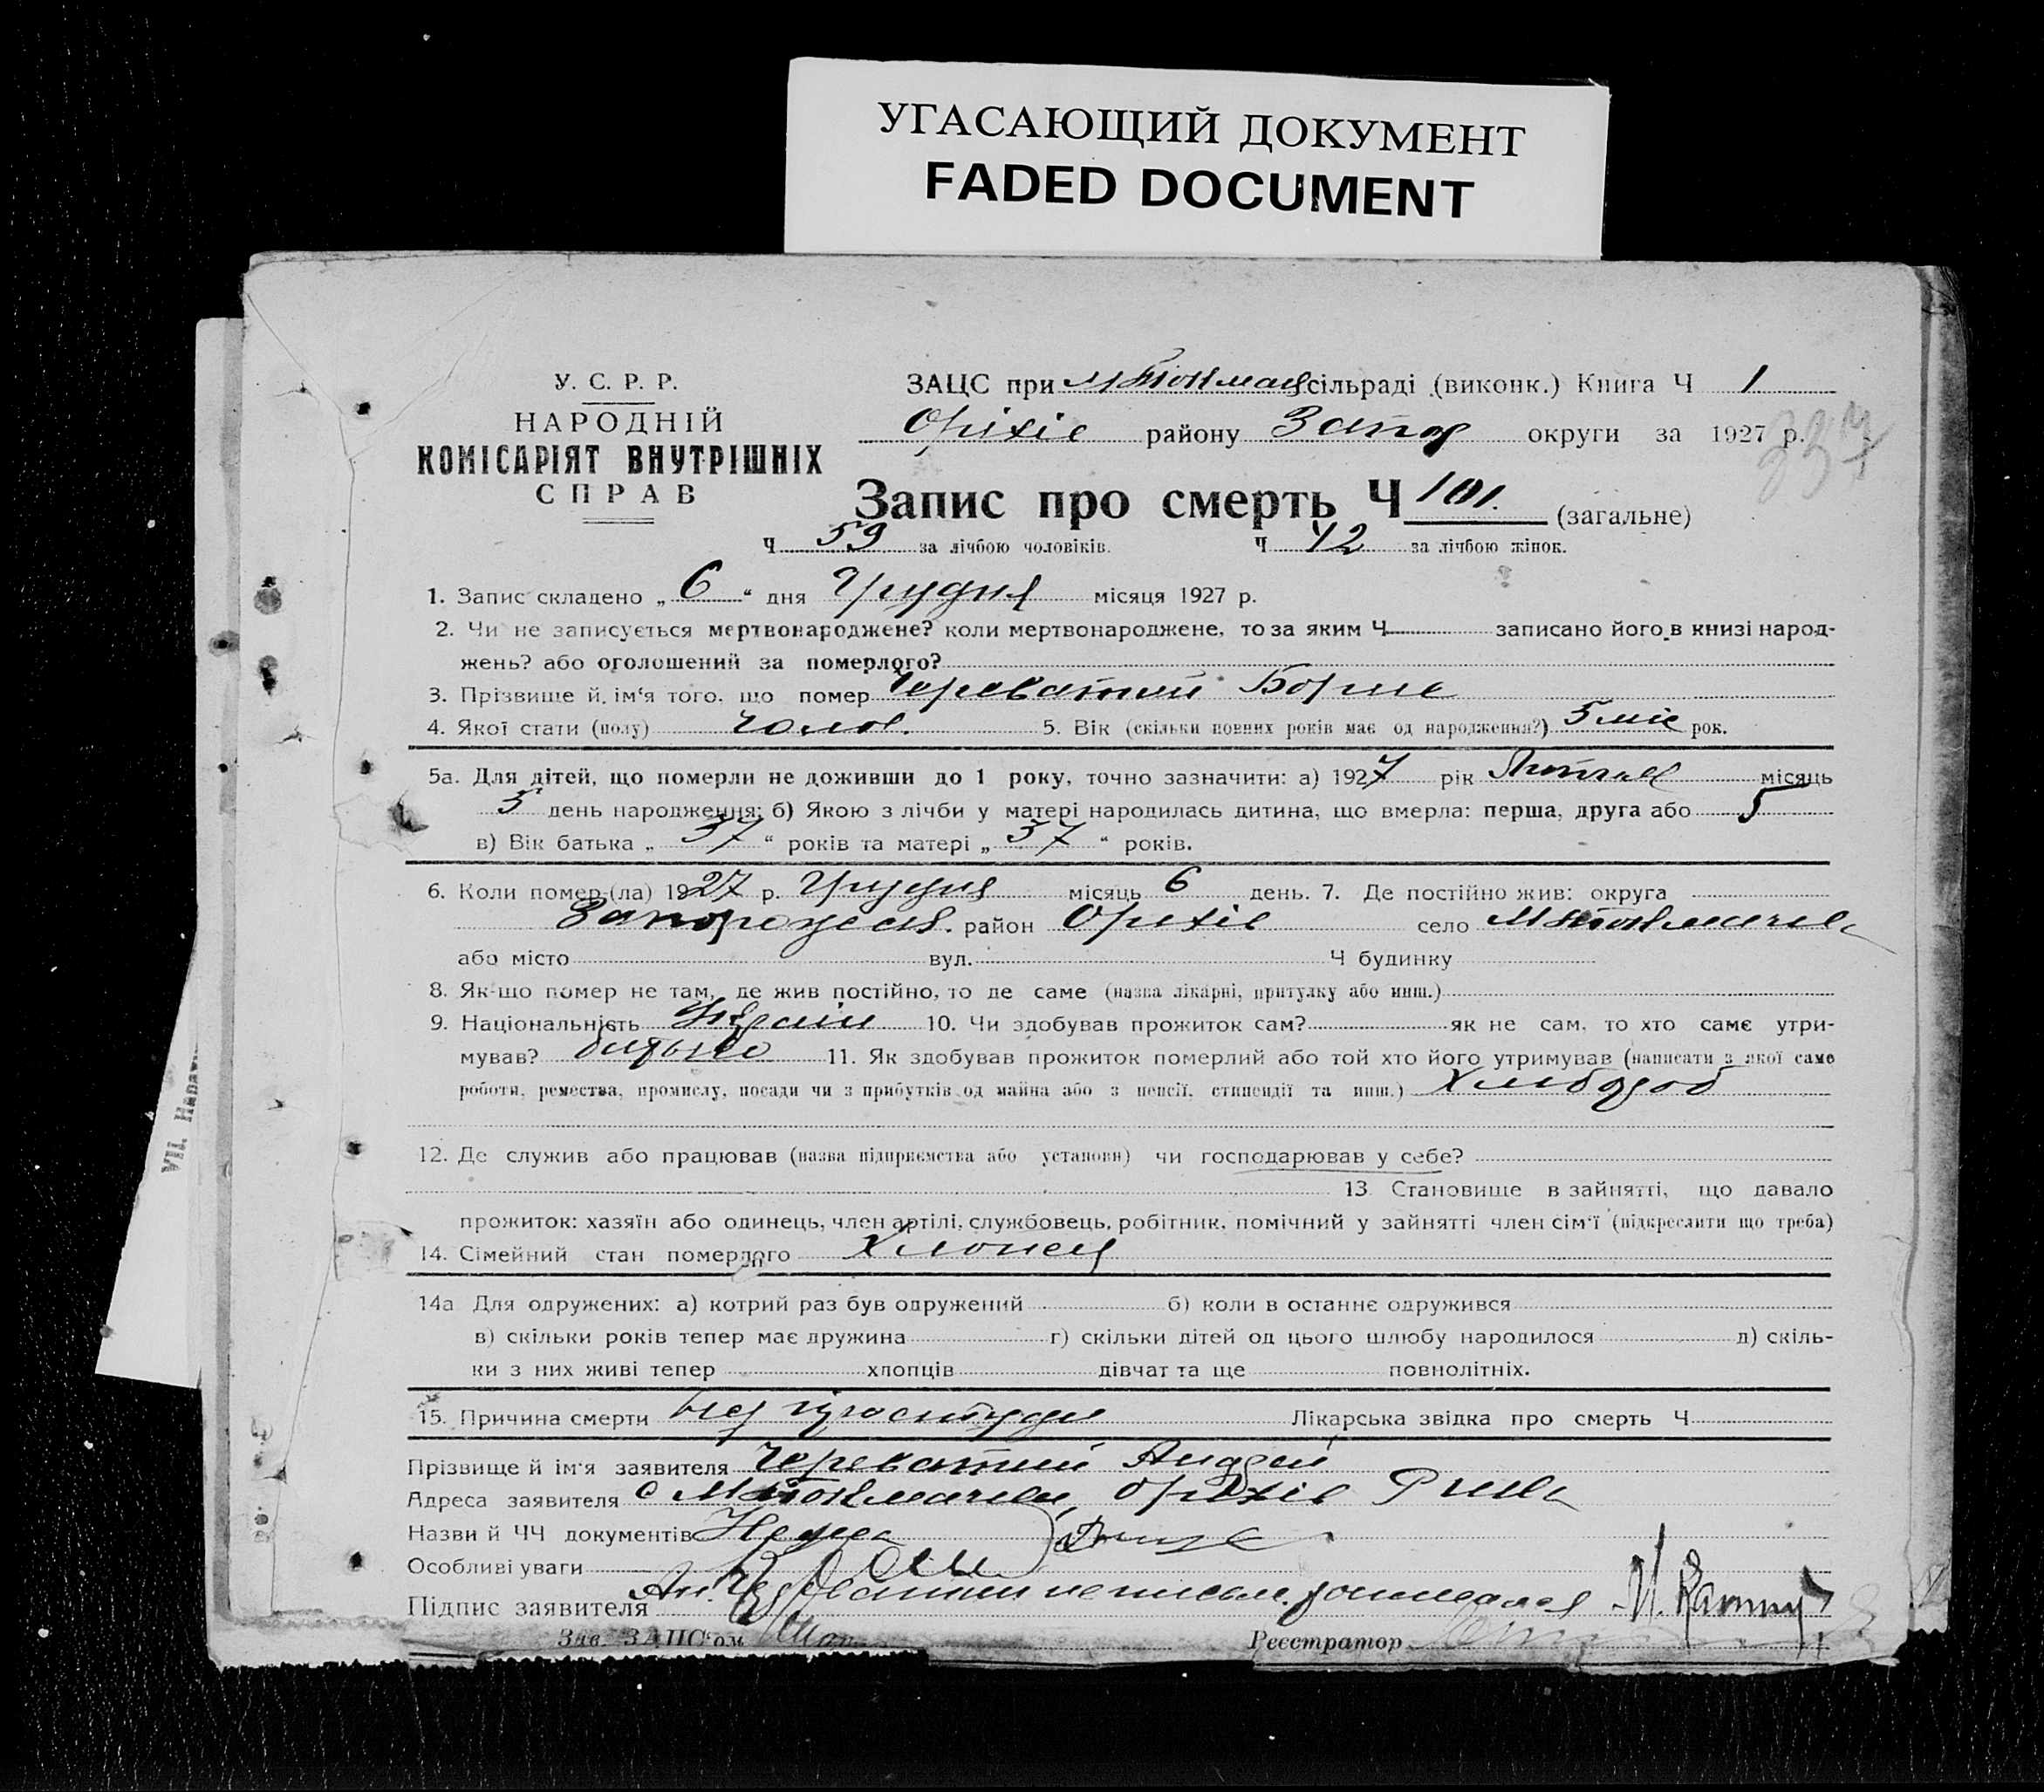 УГАСАЮЩИЙ ДОКУМЕНТ
FADED DOCUMENT
У. С. Р. Р.
НАРОДНІЙ
КОМІСАРІЯТ ВНУТРІШНІХ
СПРАВ
ЗАЦС при М Токмац сільраді (виконк.) Книга Ч 1
Оріхів району Запор округи за 1927 р.
337
Запис про смерть Ч 101. (загальне)
Ч 59 за лічбою чоловіків. Ч 42 за лічбою жінок.
1. Запис складено „ 6 “ дня Грудня місяця 1927 р.
2. Чи не записується мертвонароджене? коли мертвонароджене, то за яким Ч записано його в книзі народ-
жень? або оголошений за померлого?
3. Прізвище й ім'я того, що помер Череватий Борис
4. Якої стати (полу) чолов. 5. Вік (скільки повних років має од народження?) 5 міс рок.
5а. Для дітей, що померли не доживши до 1 року, точно зазначити: а) 1927 рік місяць
5 день народження; б) Якою з лічби у матері народилась дитина, що вмерла: перша, друга або 5
в) Вік батька „ 37 “ років та матері „ 37 “ років.
6. Коли помер (ла) 1927 р. Грудня місяць 6 день. 7. Де постійно жив: округа
район Оріхів село М Токмачка
або місто вул. Ч будинку
8. Як-що помер не там, де жив постійно, то де саме (назва лікарні, притулку або инш.)
9. Національність Україн 10. Чи здобував прожиток сам? як не сам, то хто саме утри-
мував? батько 11. Як здобував прожиток померлий або той хто його утримував (написати з якої саме
роботи, ремества, промислу, посади чи з прибутків од майна або з пенсії, стипендії та инш.) Хлибороб
12. Де служив або працював (назва підприємства або установи) чи господарював у себе?
13. Становище в зайнятті, що давало
прожиток: хазяїн або одинець, член артілі, службовець, робітник, помічний у зайнятті член сім'ї (підкреслити що треба)
14. Сімейний стан померлого Хлопець
14а Для одружених: а) котрий раз був одружений б) коли в останнє одружився
в) скільки років тепер має дружина г) скільки дітей од цього шлюбу народилося д) скіль-
ки з них живі тепер хлопців дівчат та ще повнолітніх.
15. Причина смерти Лікарська звідка про смерть Ч
Прізвище й ім'я заявителя Череватий Андрей
Адреса заявителя с М Токмачки, Оріхів
Назви й ЧЧ документів
Особливі уваги
Підпис заявителя Ан. Череватий
Зав. ЗАЦС'ом Реєстратор
VII. Наро